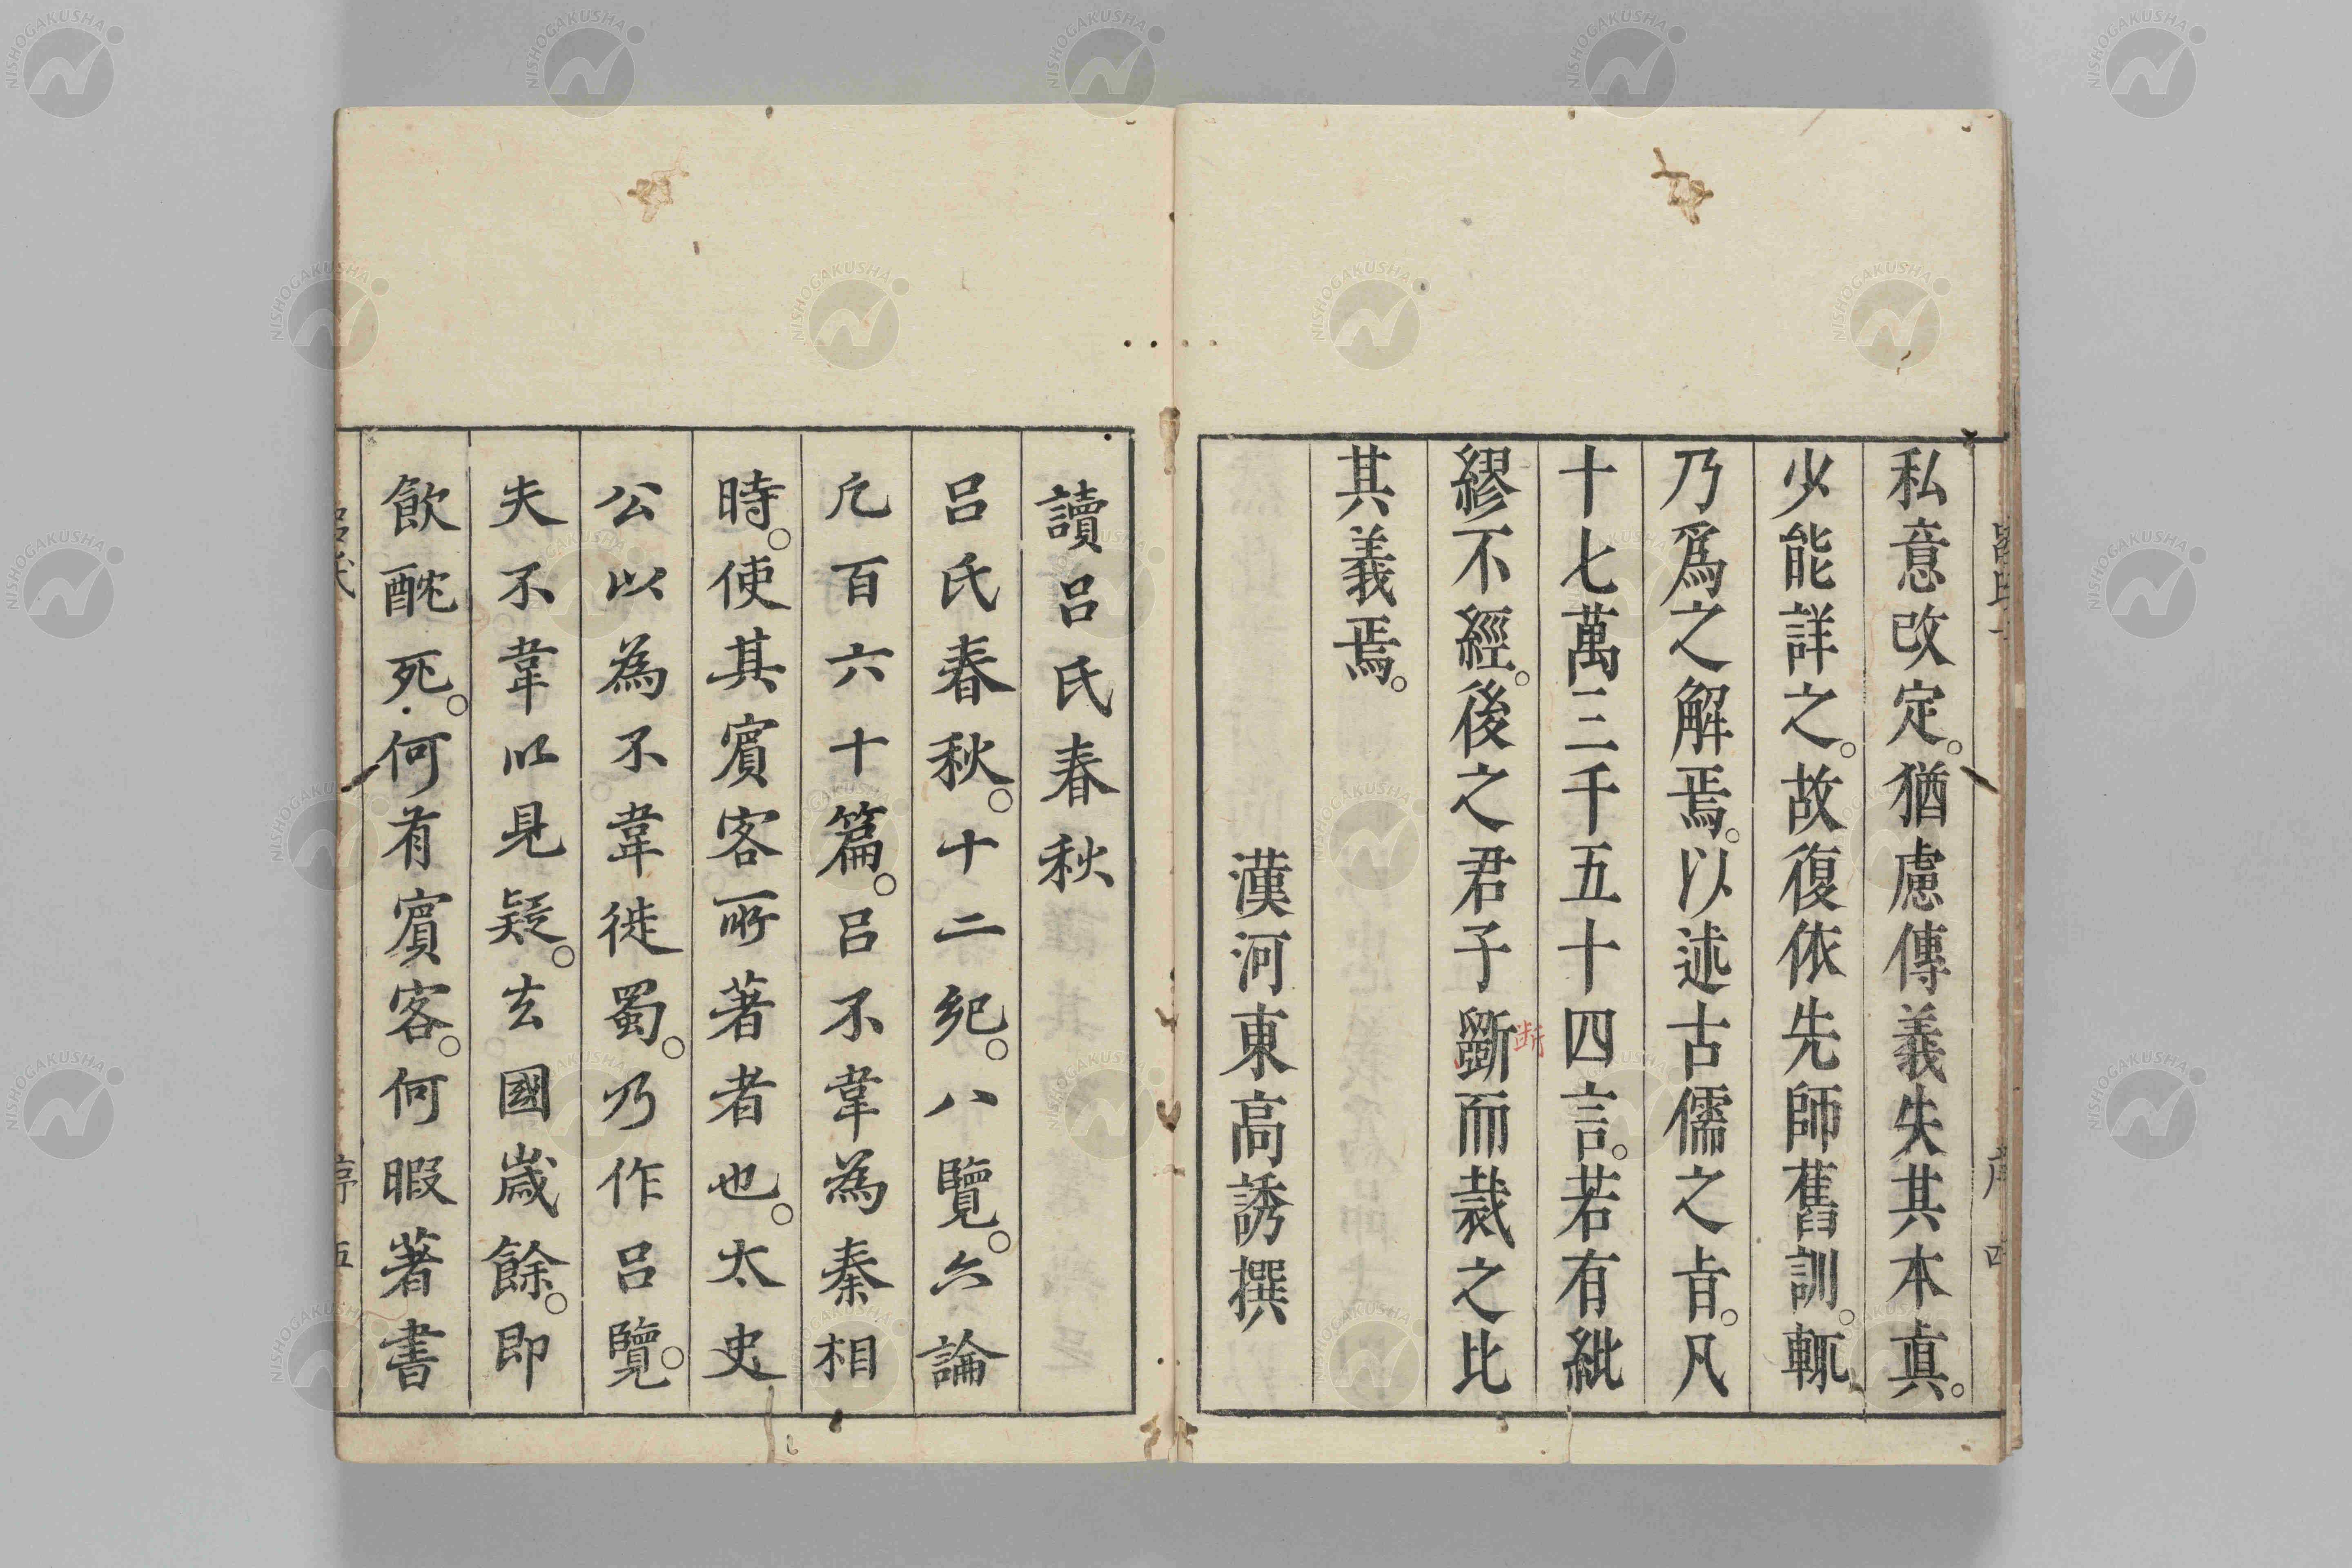 私意改定。猶慮傳義失其本真。
少能詳之。故復依先師舊訓。輒
乃爲之解焉。以述古儒之㫖。凡
十七萬三千五十四言。若有紕
繆不經。後之君子斷而裁之比
断
其義焉。
漢河東高誘撰
讀呂氏春秋
呂氏春秋。十二紀。八覽。六論
凢百六十篇。呂不韋為秦相
時。使其賓客所著者也。太史
公以為不韋徙蜀。乃作呂覽。
夫不韋以見疑。去國歲餘。即
飲酖死。何有賓客。何暇著書
NISHOGAKUSHA